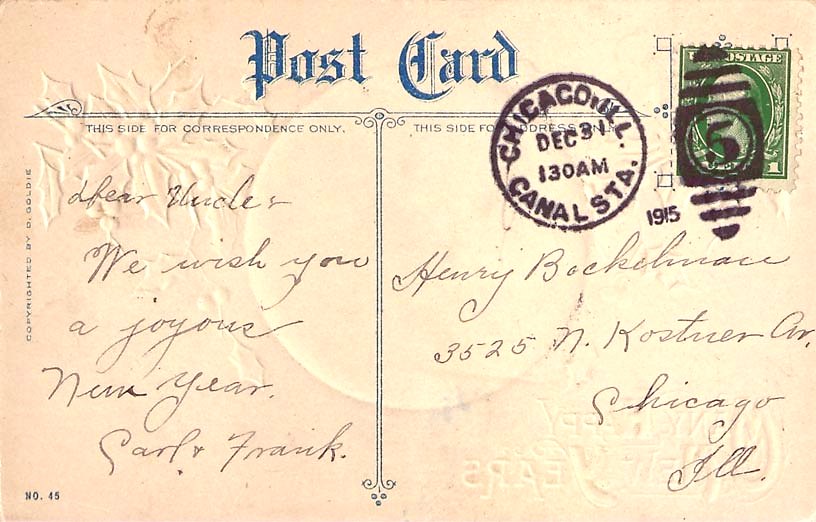 Post Card
THIS SIDE FOR CORRESPONDENCE ONLY.
THIS SIDE FOR ADDRESS ONLY.
CHICAGO, ILL.
DEC 31
130AM
CANAL STA.
1915
POSTAGE
5
1
Dear Uncle:
We wish you
a joyous
New Year.
Carl & Frank.
Henry Bockelman
3525 N. Kostner Av.
Chicago
Ill.
COPYRIGHTED BY D. GOLDIE
NO. 45